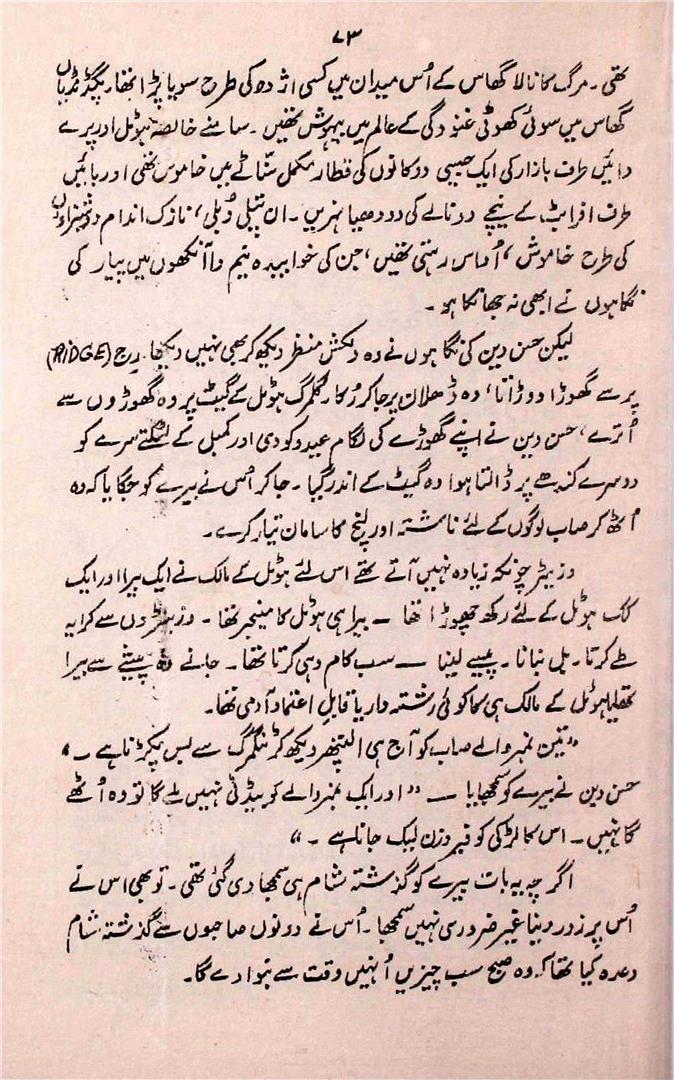 ۷۳
تھی۔ مرگ کا نالا گھاس کے اُس میدان میں کسی اژدہ کی طرح سویا پڑا تھا۔ پگڈنڈیاں
گھاس میں سوئی کھوئی غنودگی کے عالم میں بیہوش تھیں۔ سامنے خالصہ ہوٹل اور پرے
دائیں طرف بازار کی ایک جیسی دوکانوں کی قطار مکمل سنّاٹے میں خاموش تھی اور بائیں
طرف افرابٹ کے نیچے دو نالے کی دودھیا نہریں۔ ان پتلی دُبلی، نازک اندام دوشیزاؤں
کی طرح خاموش، اُداس رہتی تھیں، جن کی خوابیدہ نیم وا آنکھوں میں پیار کی
نگاہوں نے ابھی نہ جھانکا ہو۔
لیکن حسن دین کی نگاہوں نے وہ دلکش منظر دیکھ کر بھی نہیں دیکھا۔ رِج (RIDGE)
پر سے گھوڑا دوڑاتا، وہ ڈھلان پر جا کر رُکا۔ گلمرگ ہوٹل کے گیٹ پر وہ گھوڑوں سے
اُترے، حسن دین نے اپنے گھوڑے کی لگام عیدو کو دی اور کمبل کے لٹکتے سرے کو
دوسرے کندھے پر ڈالتا ہوا وہ گیٹ کے اندر گیا۔ جا کر اُس نے بیرے کو جگایا کہ وہ
اُٹھ کر صاب لوگوں کے لئے ناشتہ اور لنچ کا سامان تیار کرے۔
وزیٹر چونکہ زیادہ نہیں آتے تھے اس لئے ہوٹل کے مالک نے ایک بیرا اور ایک
کک ہوٹل کے لئے رکھ چھوڑا تھا — بیرا ہی ہوٹل کا منیجر تھا۔ وزیٹروں سے کرایہ
طے کرتا۔ بل بنانا۔ پیسے لینا — سب کام وہی کرتا تھا۔ جانے وہ پیشے سے بیرا
تھا یا ہوٹل کے مالک ہی کا کوئی رشتہ دار یا قابلِ اعتماد آدمی تھا۔
”تین نمبر والے صاب کو آج ہی الپتھر دیکھ کر ٹنگمرگ سے بس پکڑنا ہے۔“
حسن دین نے بیرے کو سمجھایا — ”اور ایک نمبر والے کو بیڈ ٹی نہیں ملے گا تو وہ اُٹھے
گا نہیں۔ اس کا لڑکی کو فیروزن لیک جانا ہے۔“
اگرچہ یہ بات بیرے کو گذشتہ شام ہی سمجھا دی گئی تھی۔ تو بھی اس نے
اُس پر زور دینا غیر ضروری نہیں سمجھا۔ اُس نے دونوں صاحبوں سے گذشتہ شام
وعدہ کیا تھا کہ وہ صبح سب چیزیں اُنہیں وقت سے بنوا دے گا۔